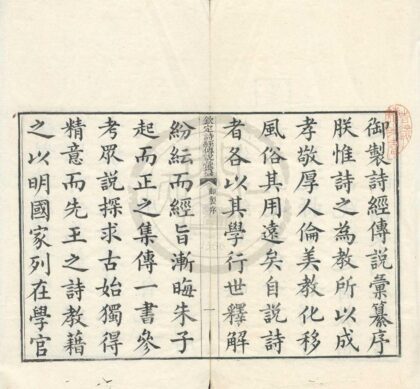 御製詩經傳說彙纂序
朕惟詩之為教所以成
孝敬厚人倫美教化移
風俗其用遠矣自說詩
者各以其學行世釋解
欽定詩經傳說彙纂
御製序
一
紛紜而經旨漸晦朱子
起而正之集傳一書參
考眾說探求古始獨得
精意而先王之詩教藉
之以明國家列在學官